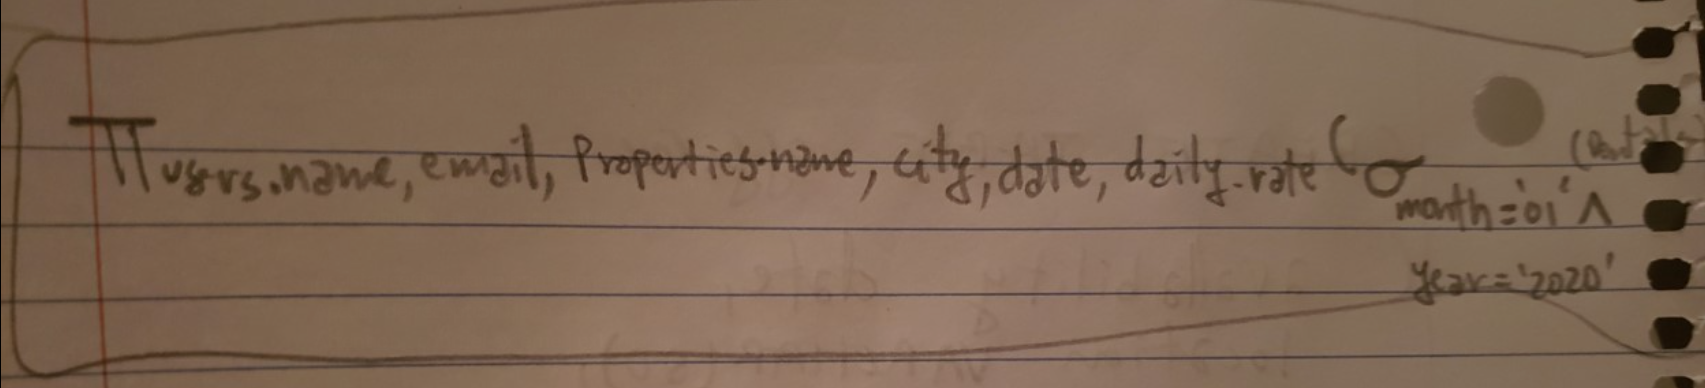 π users.name, email, Properties.name, city, date, daily-rate (σ month='01' ∧
year='2020'